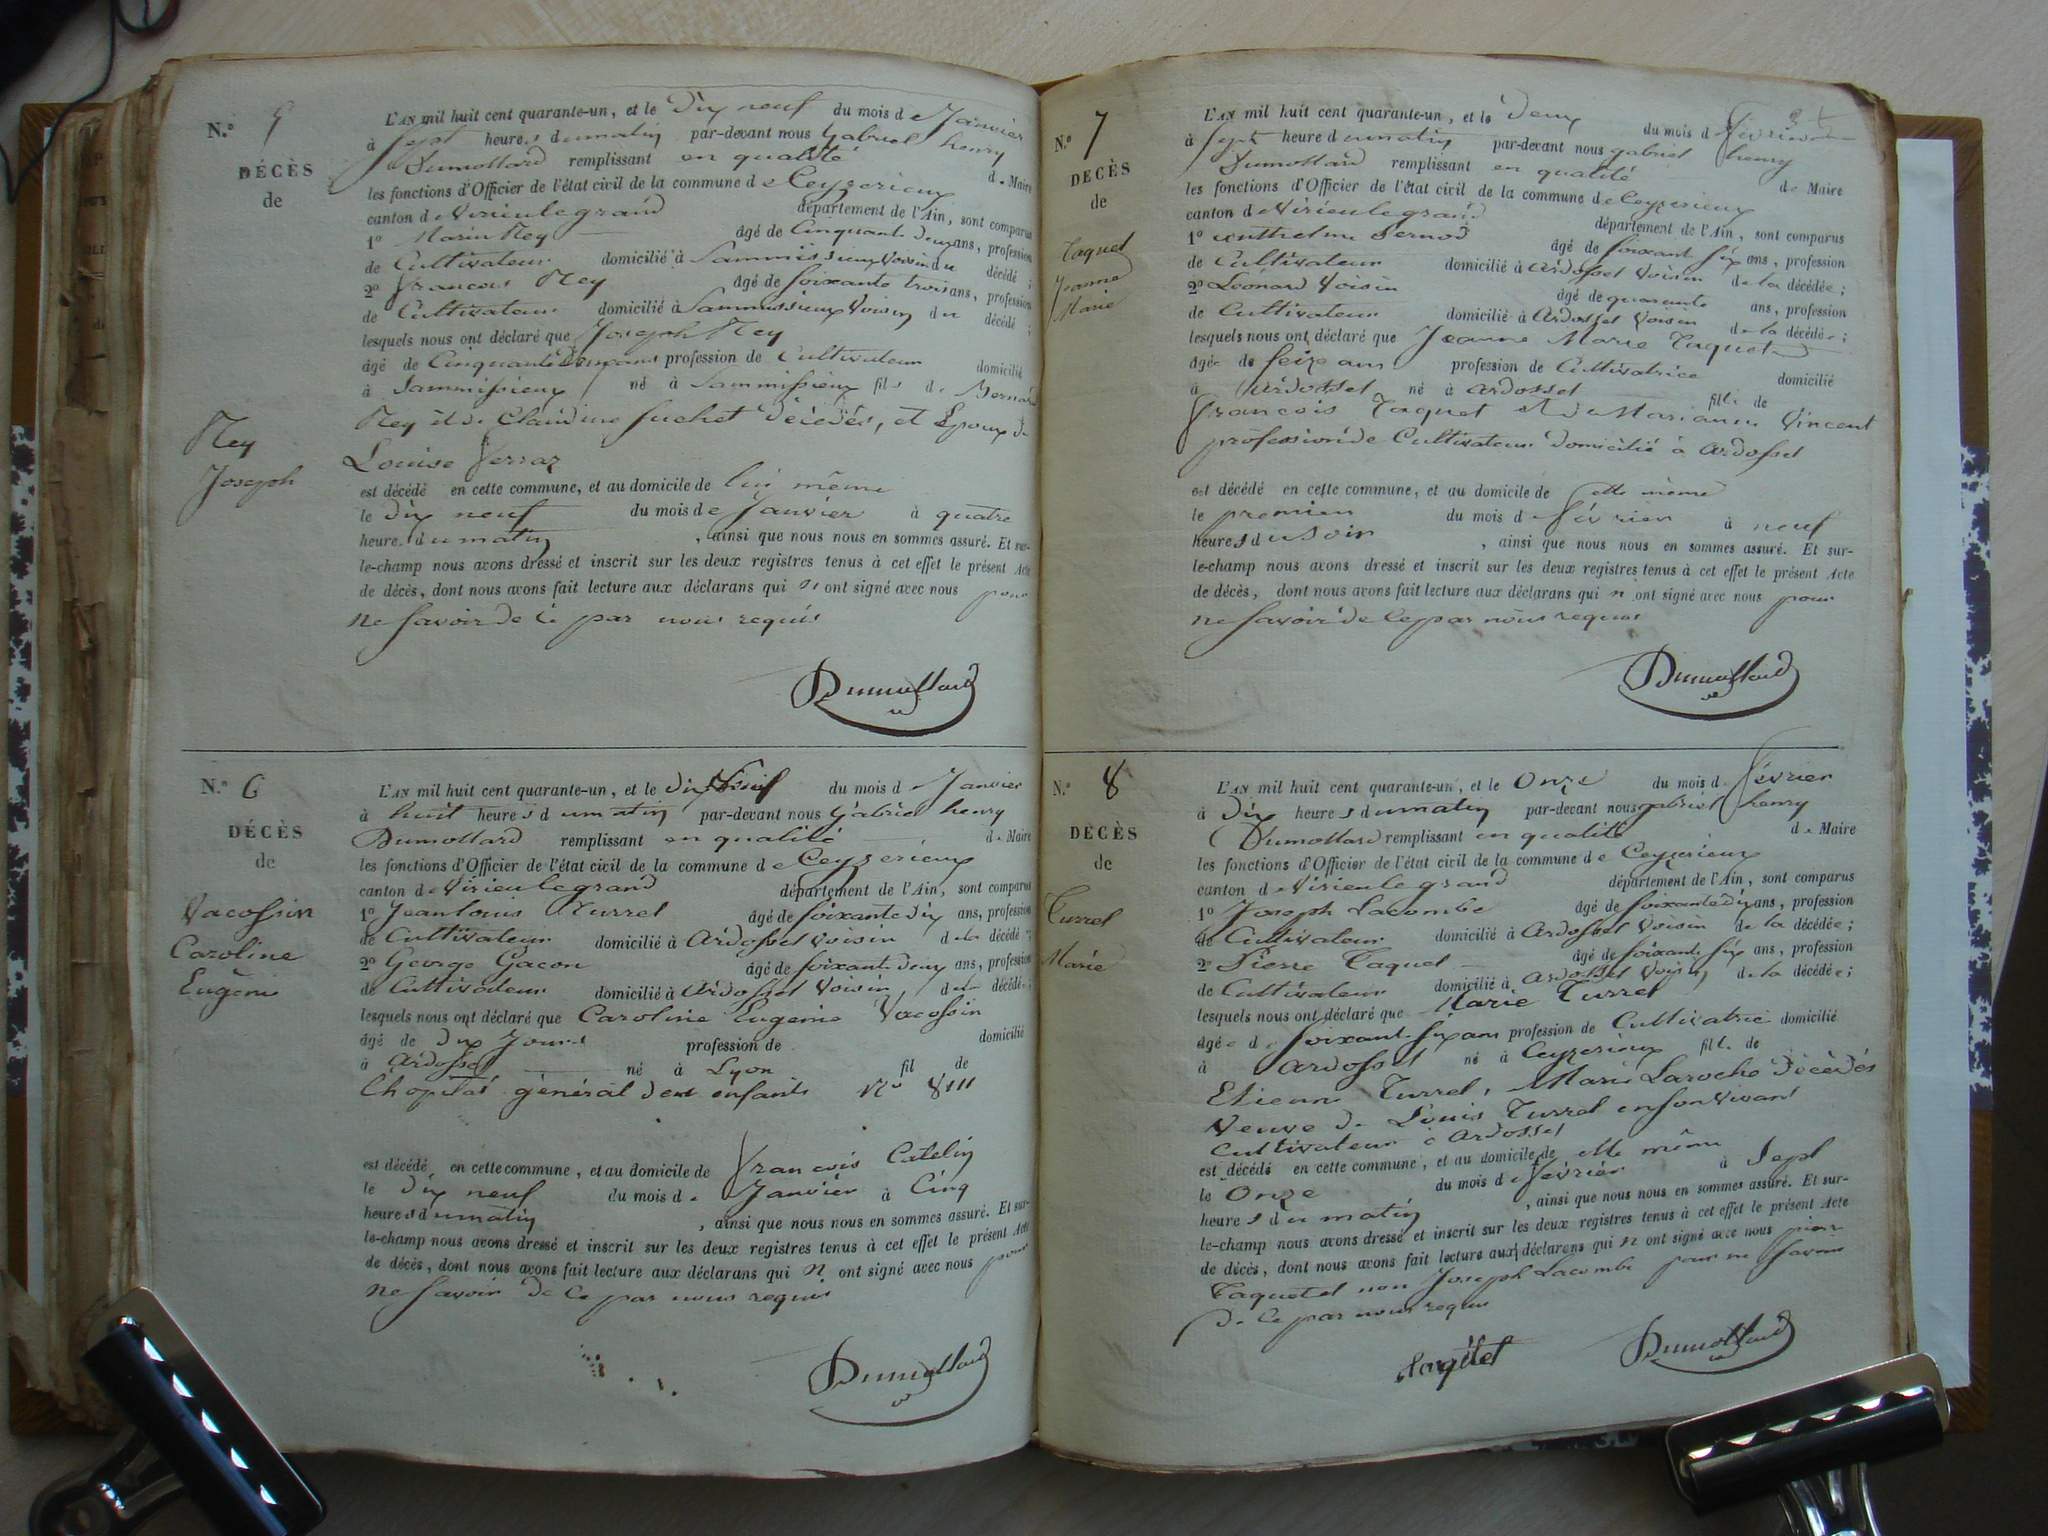 N.o 5
DÉCÈS
de
Ney
Joseph
L'AN mil huit cent quarante-un, et le Dix neuf du mois de Janvier
à Sept heures du matin par-devant nous Gabriel henry
Dumollard remplissant en qualité de Maire
les fonctions d'Officier de l'état civil de la commune de Ceyzerieux
canton de Virieulegrand département de l'Ain, sont comparus
1o Marin Ney âgé de Cinquante Deux ans, profession
de Cultivateur domicilié à Sammissieux Voisin du décédé ;
2o francois Ney âgé de soixante trois ans, profession
de Cultivateur domicilié à Sammissieux Voisin du décédé ;
lesquels nous ont déclaré que Joseph Ney
âgé de Cinquante ans profession de Cultivateur domicilié
à Sammissieux né à Sammissieux fils de Bernard
Ney et de Claudine fuchet Décédés, et Epoux de
Louise ferraz
est décédé en cette commune, et au domicile de lui même
le dix neuf du mois de Janvier à quatre
heure du matin , ainsi que nous nous en sommes assuré. Et sur-
le-champ nous avons dressé et inscrit sur les deux registres tenus à cet effet le présent Acte
de décès, dont nous avons fait lecture aux déclarans qui n ont signé avec nous pour
ne savoir de ce par nous requis
Dumollard
N.o 6
DÉCÈS
de
Vacossin
Caroline
Eugénie
L'AN mil huit cent quarante-un, et le du mois d Janvier
à huit heures du matin par-devant nous Gabriel henry
Dumollard remplissant en qualité de Maire
les fonctions d'Officier de l'état civil de la commune de Ceyzerieux
canton de Virieulegrand département de l'Ain, sont comparus
1o Jean louis Turrel âgé de soixante dix ans, profession
de Cultivateur domicilié à Ardosset Voisin de la décédé ;
2o George Gacon âgé de soixante deux ans, profession
de Cultivateur domicilié à Ardosset Voisin de la décédée ;
lesquels nous ont déclaré que Caroline Eugenie Vacossin
âgé de dix Jours profession de domicilié
à Ardosset né à Lyon fil de
lhopital général des enfants No
est décédé en cette commune, et au domicile de francois Catelin
le dix neuf du mois de Janvier à Cinq
heures du matin , ainsi que nous nous en sommes assuré. Et sur-
le-champ nous avons dressé et inscrit sur les deux registres tenus à cet effet le présent Acte
de décès, dont nous avons fait lecture aux déclarans qui n ont signé avec nous pour
ne savoir de ce par nous requis
Dumollard
N.o 7
DÉCÈS
de
Taquet
Jeanne
Marie
L'AN mil huit cent quarante-un, et le Deux du mois d février
à sept heure du matin par-devant nous gabriel henry
Dumollard remplissant en qualité de Maire
les fonctions d'Officier de l'état civil de la commune de Ceyzerieux
canton de Virieulegrand département de l'Ain, sont comparus
1o Anthelme âgé de soixant six ans, profession
de Cultivateur domicilié à Ardosset Voisin de la décédée ;
2o Léonard Voisin âgé de quarante ans, profession
de Cultivateur domicilié à Ardosset Voisin de la décédée ;
lesquels nous ont déclaré que Jeanne Marie Taquet
âgée de seize ans profession de Cultivatrice domicilié
à Ardosset né à Ardosset fille de
francois Taquet et de Marianne Vincent
profession de Cultivateur domicilié à Ardosset
est décédé en cette commune, et au domicile de elle même
le premier du mois d février à neuf
heures du soir , ainsi que nous nous en sommes assuré. Et sur-
le-champ nous avons dressé et inscrit sur les deux registres tenus à cet effet le présent Acte
de décès, dont nous avons fait lecture aux déclarans qui n ont signé avec nous pour
ne savoir de ce par nous requis
Dumollard
N.o 8
DÉCÈS
de
Turrel
Marie
L'AN mil huit cent quarante-un, et le Onze du mois d février
à dix heures du matin par-devant nous gabriel henry
Dumollard remplissant en qualité de Maire
les fonctions d'Officier de l'état civil de la commune de Ceyzerieux
canton de Virieulegrand département de l'Ain, sont comparus
1o Joseph Lacombe âgé de soixante dix ans, profession
de Cultivateur domicilié à Ardosset Voisin de la décédée ;
2o Pierre Taquet âgé de soixant six ans, profession
de Cultivateur domicilié à Ardosset Voisin de la décédée ;
lesquels nous ont déclaré que Marie Turrel
âgée de soixant six ans profession de Cultivatrice domicilié
à Ardosset né à Ceyzerieux fille de
Etienne Turrel, Marie Laroche Décédés
Veuve de Louis Turrel en son vivant
Cultivateur à Ardosset
est décédé en cette commune, et au domicile de elle même
le Onze du mois de février à Sept
heures du matin , ainsi que nous nous en sommes assuré. Et sur-
le-champ nous avons dressé et inscrit sur les deux registres tenus à cet effet le présent Acte
de décès, dont nous avons fait lecture aux déclarans qui n ont signé avec nous
Taquet et non Joseph Lacombe pour ne savoir
de ce par nous requis
Dumollard